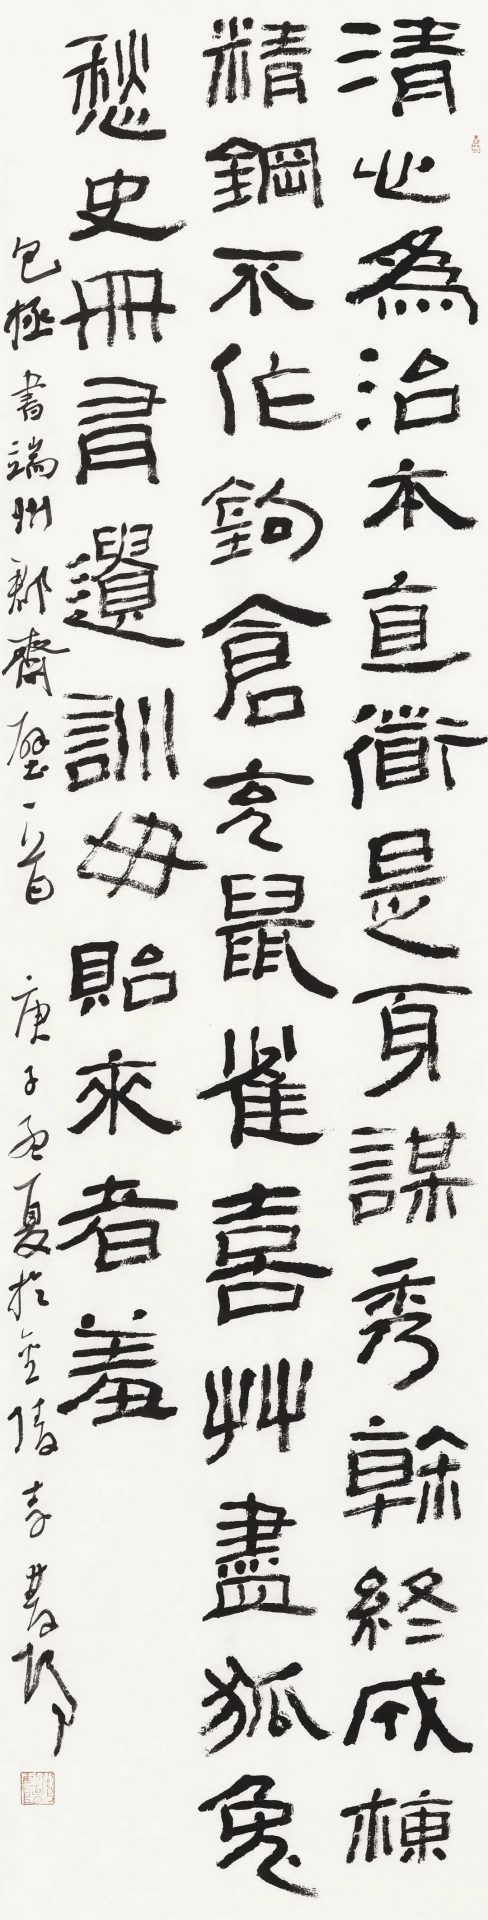 清心為治本直衜是身謀秀榦終成棟
精鋼不作鉤倉充鼠雀喜艸盡狐兔
愁史冊書遺訓毋貽來者羞
包拯書端州郡齋壁一首 庚子孟夏於金陵